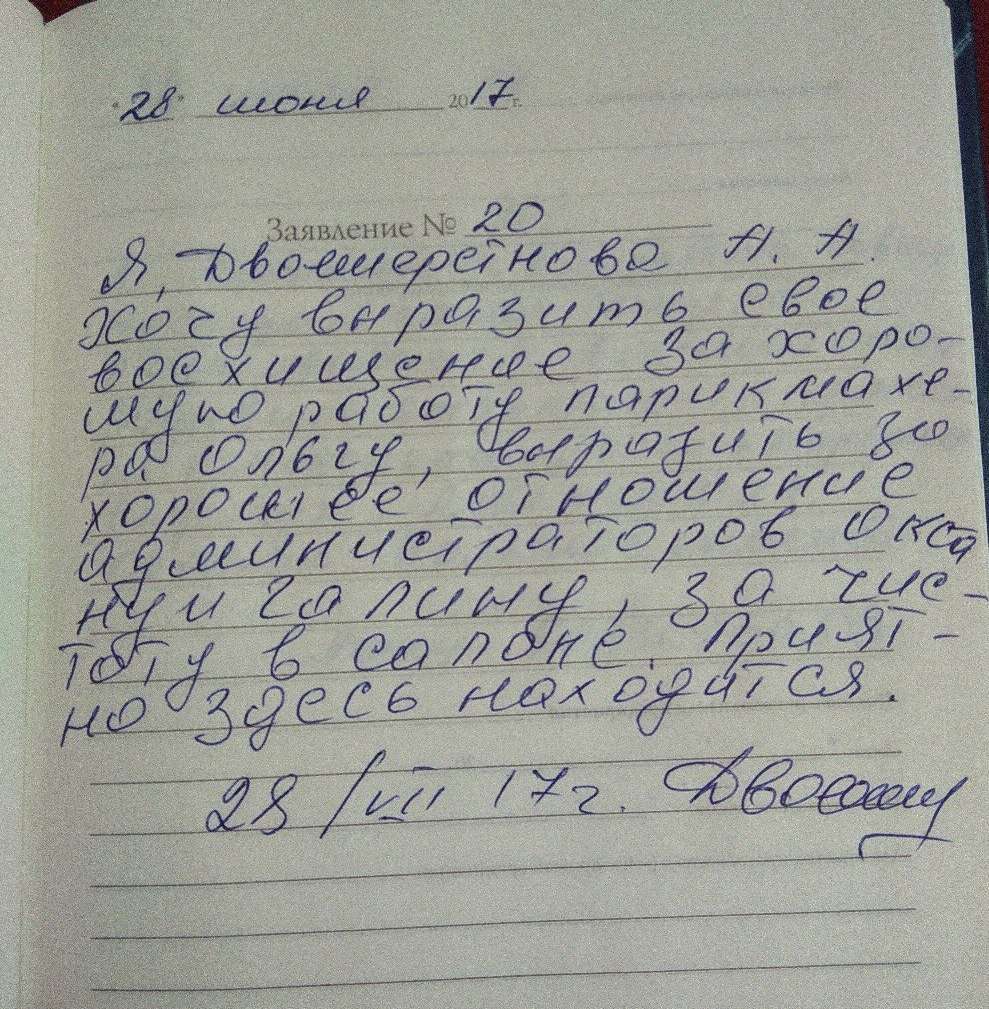 "28" июня 2017 г.
Заявление № 20
Я, Двошерстнова А. А.
хочу выразить свое
восхищение за хоро-
шую работу парикмахе-
ра Ольгу, выразить за
хорошее отношение
администраторов Окса
ну и Галину, за чис-
тоту в салоне. Прият-
но здесь находится.
28/VII 17 г.